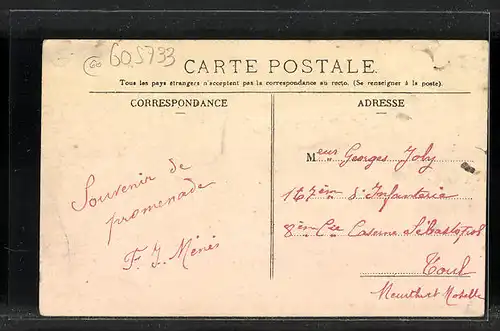 605733
CARTE POSTALE.
Tous les pays étrangers n'acceptent pas la correspondance au recto. (Se renseigner à la poste).
CORRESPONDANCE
ADRESSE
Souvenir de
promenade
F. J.
Meur Georges Joly
167ème d'Infanterie
8ème Cie Caserne Sébastopol
Toul
Meurthe et Moselle